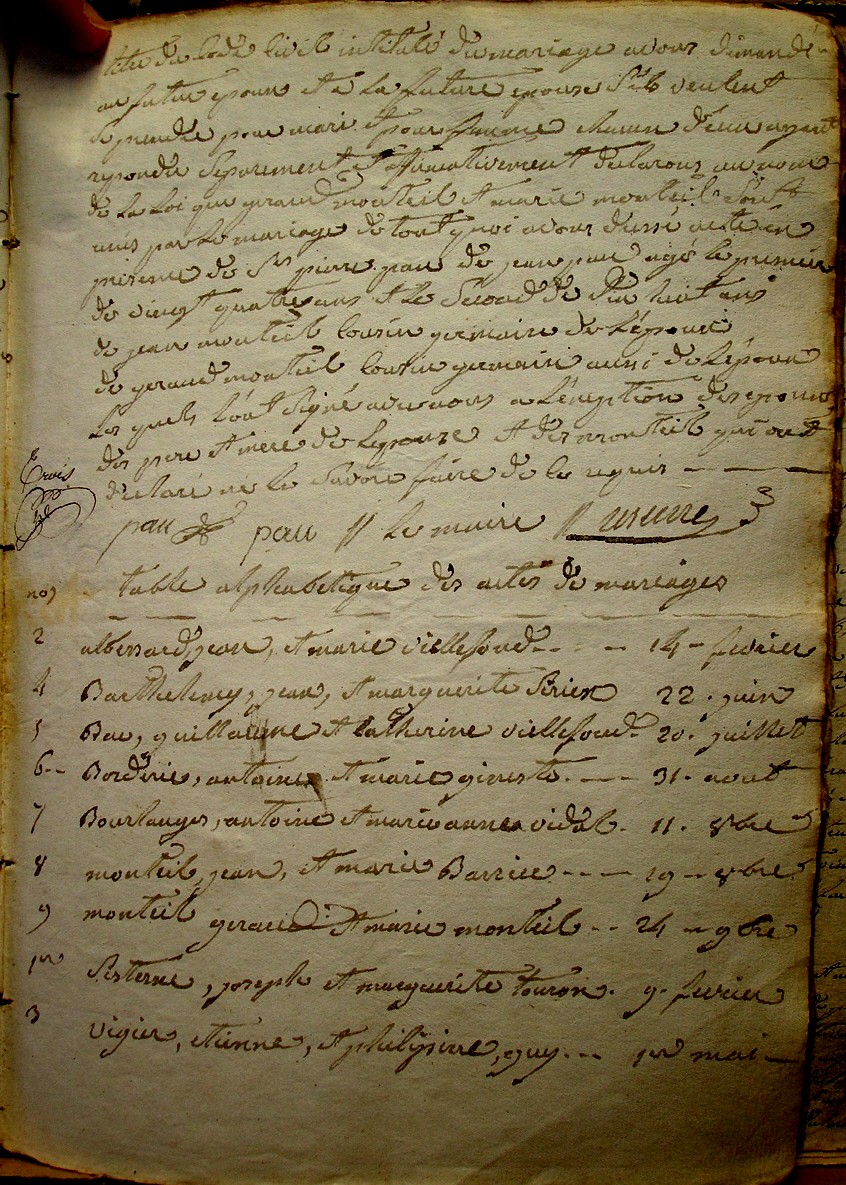 titre du code civil intitulé du mariage avons demandé
au futur epoux et a la future epouse s'ils veulent
se prendre pour mari et pour femme chacun d'eux ayant
repondu separement et affirmativement declarons au nom
de la loi que geraud monteil et marie monteil sont
unis par le mariage de tout quoi avons dressé acte en
presence de srs pierre pau de jean pau agé le premier
de vingt quatre ans et le second de huit ans
de jean monteil cousin germain de l'epoux
de geraud monteil cousin germain aussi de l'epoux
les quels l'ont signé avec nous a l'exception des epoux
des pere et mere de l'epouse et des monteil qui ont
declaré ne le savoir faire de ce requis
trois
pau pau le maire
nos table alphabetique des actes de mariages
2 albessard, jean, et marie viellefond 14 fevrier
4 Barthelemy, jean, et marguerite Sirien 22 juin
5 Bac, guillaume et catherine viellefond 20 juillet
6 Borderie, antoine et marie gineste 31 aout
7 Bourlanges, antoine et marieanne vidal 11 8bre
8 monteil, jean, et marie Barriere 19 8bre
9 monteil geraud et marie monteil 24 9bre
1er Sisterne, joseph et marguerite touron 9 fevrier
3 vigier, etienne, et philipine, guy 1er mai